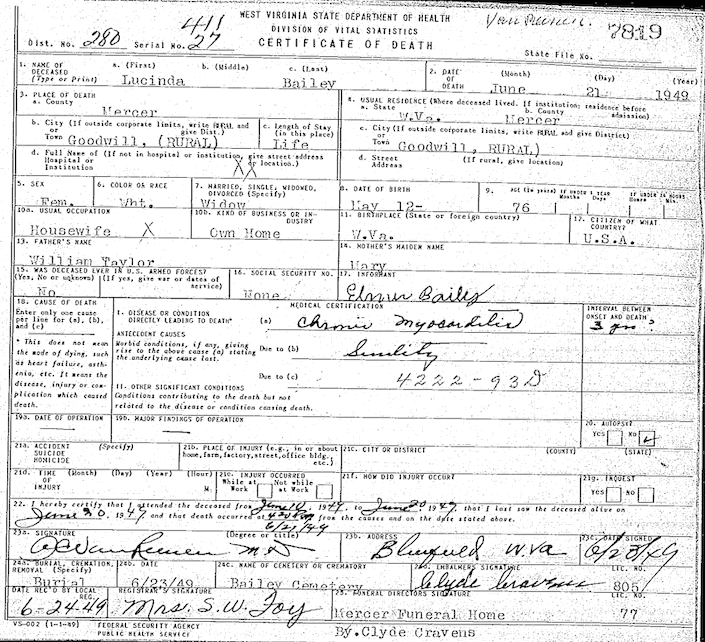 WEST VIRGINIA STATE DEPARTMENT OF HEALTH
DIVISION OF VITAL STATISTICS
CERTIFICATE OF DEATH
7819
411
Dist. No. 280 Serial No. 27
State File No.
1. NAME OF DECEASED (Type or Print) a. (First) b. (Middle) c. (Last)
Lucinda Bailey
2. DATE OF DEATH (Month) (Day) (Year)
June 21 1949
3. PLACE OF DEATH
a. County
Mercer
4. USUAL RESIDENCE (Where deceased lived. If institution: residence before admission)
a. State b. County
W.Va. Mercer
b. City (If outside corporate limits, write RURAL and give Dist.)
or Town Goodwill, (RURAL)
c. Length of Stay (in this place)
Life
c. City (If outside corporate limits, write RURAL and give District)
or Town Goodwill, RURAL)
d. Full Name of (If not in hospital or institution, give street address or location.)
Hospital or Institution
XX
d. Street Address (If rural, give location)
5. SEX
Fem.
6. COLOR OR RACE
Wht.
7. MARRIED, SINGLE, WIDOWED, DIVORCED (Specify)
Widow
8. DATE OF BIRTH
May 12-
9. AGE (In years) IF UNDER 1 YEAR Months Days IF UNDER 24 HOURS Hours Min.
76
10a. USUAL OCCUPATION
Housewife X
10b. KIND OF BUSINESS OR INDUSTRY
Own Home
11. BIRTHPLACE (State or foreign country)
W.Va.
12. CITIZEN OF WHAT COUNTRY?
U.S.A.
13. FATHER'S NAME
William Taylor
14. MOTHER'S MAIDEN NAME
Mary
15. WAS DECEASED EVER IN U.S. ARMED FORCES?
(Yes, No or unknown) (If yes, give war or dates of service)
No
16. SOCIAL SECURITY NO.
None
17. INFORMANT
Elmer Bailey
18. CAUSE OF DEATH
Enter only one cause per line for (a), (b), and (c)
* This does not mean the mode of dying, such as heart failure, asthenia, etc. It means the disease, injury or complication which caused death.
MEDICAL CERTIFICATION
I. DISEASE OR CONDITION DIRECTLY LEADING TO DEATH*
(a) Chronic Myocarditis
ANTECEDENT CAUSES
Morbid conditions, if any, giving rise to the above cause (a) stating the underlying cause last.
Due to (b) Senility
Due to (c)
4222-93D
II. OTHER SIGNIFICANT CONDITIONS
Conditions contributing to the death but not related to the disease or condition causing death.
INTERVAL BETWEEN ONSET AND DEATH
3 yrs?
19a. DATE OF OPERATION
19b. MAJOR FINDINGS OF OPERATION
20. AUTOPSY?
YES NO
21a. ACCIDENT SUICIDE HOMICIDE (Specify)
21b. PLACE OF INJURY (e.g., in or about home, farm, factory, street, office bldg., etc.)
21c. CITY OR DISTRICT (COUNTY) (STATE)
21d. TIME OF INJURY (Month) (Day) (Year) (Hour) M.
21e. INJURY OCCURRED While at Work Not while at Work
21f. HOW DID INJURY OCCUR
21g. INQUEST
YES NO
22. I hereby certify that I attended the deceased from June 10, 1949, to June 20 1949, that I last saw the deceased alive on
June 20, 1949 and that death occurred at from the causes and on the date stated above.
6/21/49
23a. SIGNATURE (Degree or title)
M.D
23b. ADDRESS
Bluefield W.Va
23c. DATE SIGNED
6/23/49
24a. BURIAL, CREMATION, REMOVAL (Specify)
Burial
24b. DATE
6/23/49
24c. NAME OF CEMETERY OR CREMATORY
Bailey Cemetery
24d. EMBALMERS SIGNATURE LIC. NO.
Clyde Cravens 805
DATE REC'D BY LOCAL REG.
6-24-49
REGISTRAR'S SIGNATURE
Mrs. S.W. Foy
25. FUNERAL DIRECTORS SIGNATURE LIC. NO.
Mercer Funeral Home 77
By. Clyde Cravens
VS-002 (1-1-49) FEDERAL SECURITY AGENCY
PUBLIC HEALTH SERVICE